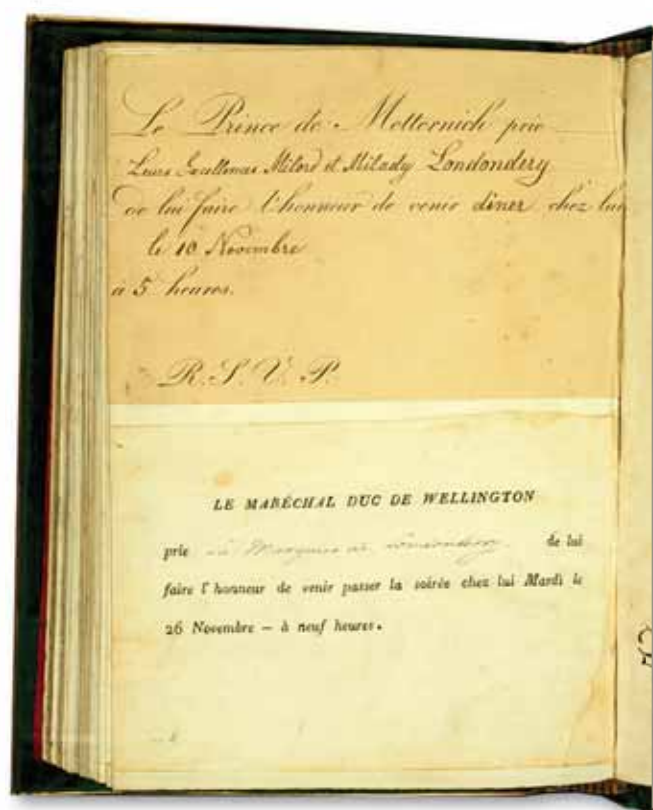 Le Prince de Metternich prie
Leurs Excellences Milord et Milady Londondery
de lui faire l'honneur de venir diner chez lui
le 10 Novembre
à 5 heures.
R. S. V. P.
LE MARÉCHAL DUC DE WELLINGTON
prie Marquis de de lui
faire l'honneur de venir passer la soirée chez lui Mardi le
26 Novembre – à neuf heures.